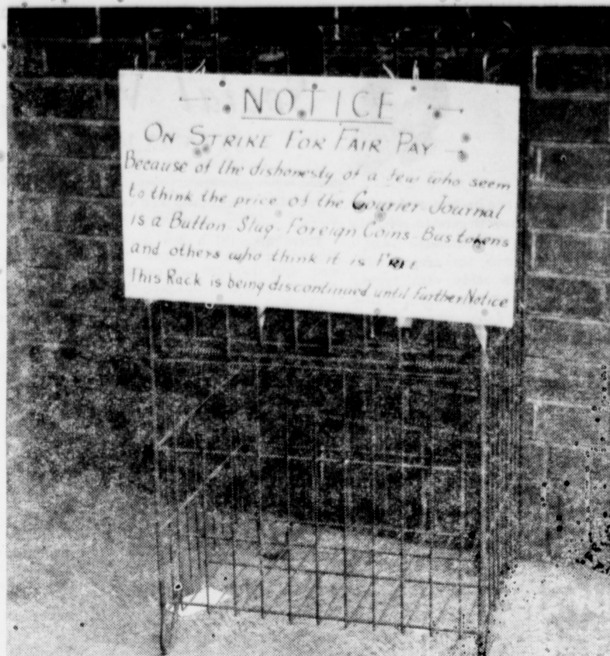 NOTICE
ON STRIKE FOR FAIR PAY
Because of the dishonesty of a few who seem
to think the price of the Courier-Journal
is a Button-Slug-Foreign Coins-Bus tokens
and others who think it is FREE
This Rack is being discontinued until Further Notice